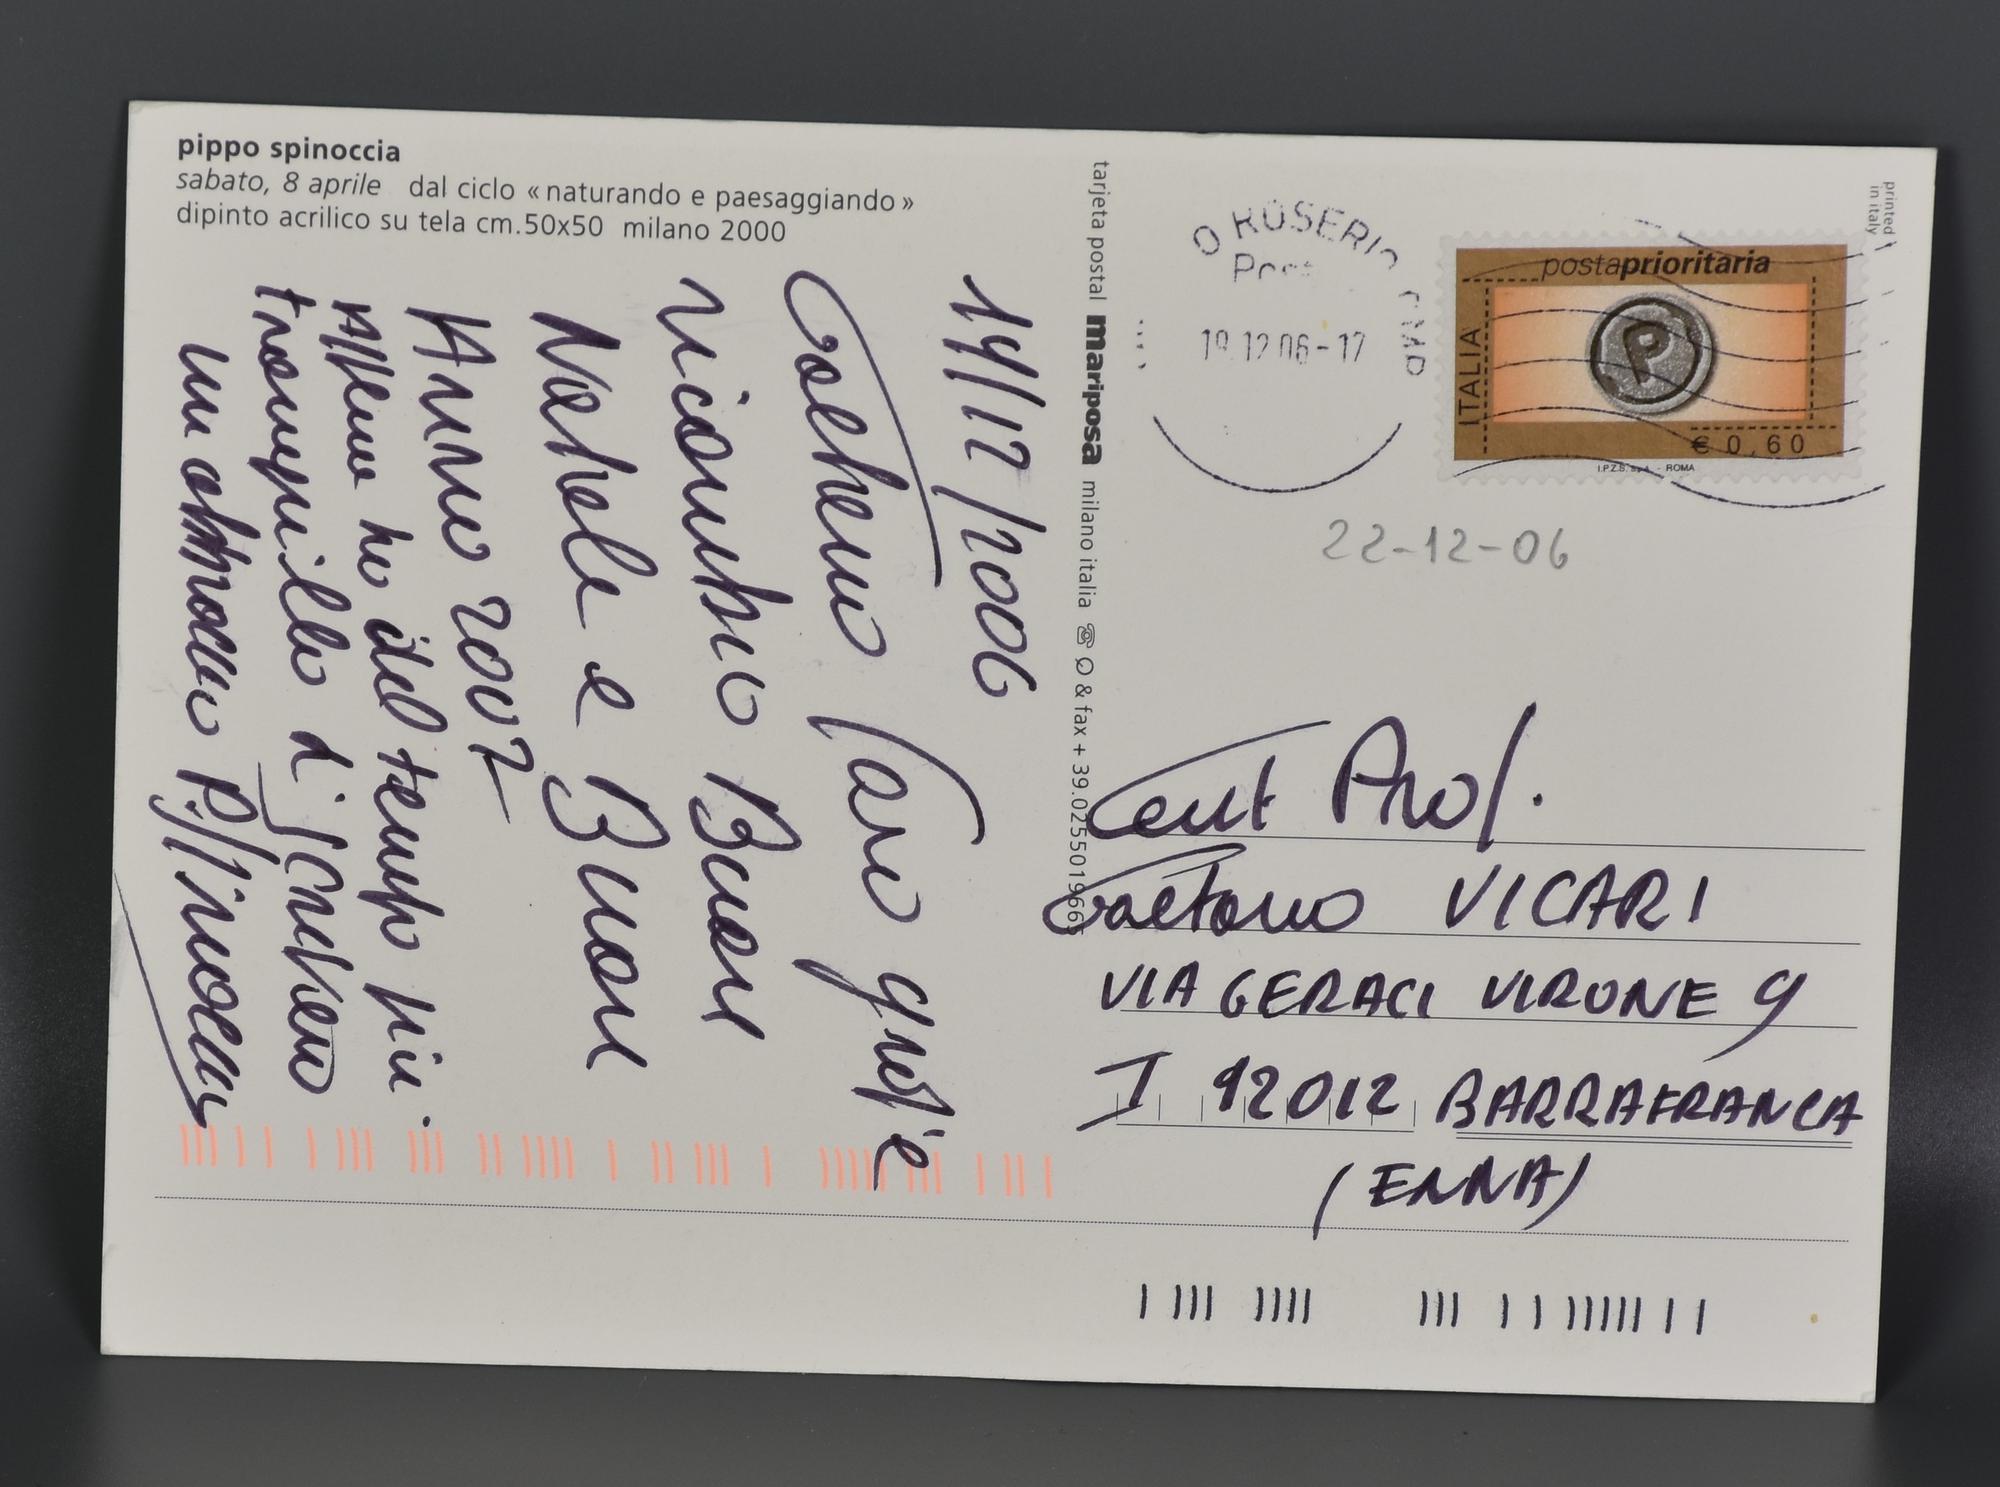 pippo spinoccia
sabato, 8 aprile dal ciclo «naturando e paesaggiando»
dipinto acrilico su tela cm.50x50 milano 2000
14/12/2006
Gaetano caro grazie
ricambio Buon
Natale e Buon
Anno 2007
Appena ho del tempo più
tranquillo ti scriverò
un abbraccio P. Spinoccia
tarjeta postal mariposa milano italia ☏ & fax + 39.0255019665
printed
in italy
O ROSERIO CMP
19.12.06-17
postaprioritaria
ITALIA
P
€ 0,60
I.P.Z.S. S.p.A. - ROMA
22-12-06
Gent Prof.
Gaetano VICARI
VIA GERACI VIRONE 9
I 92012 BARRAFRANCA
(ENNA)